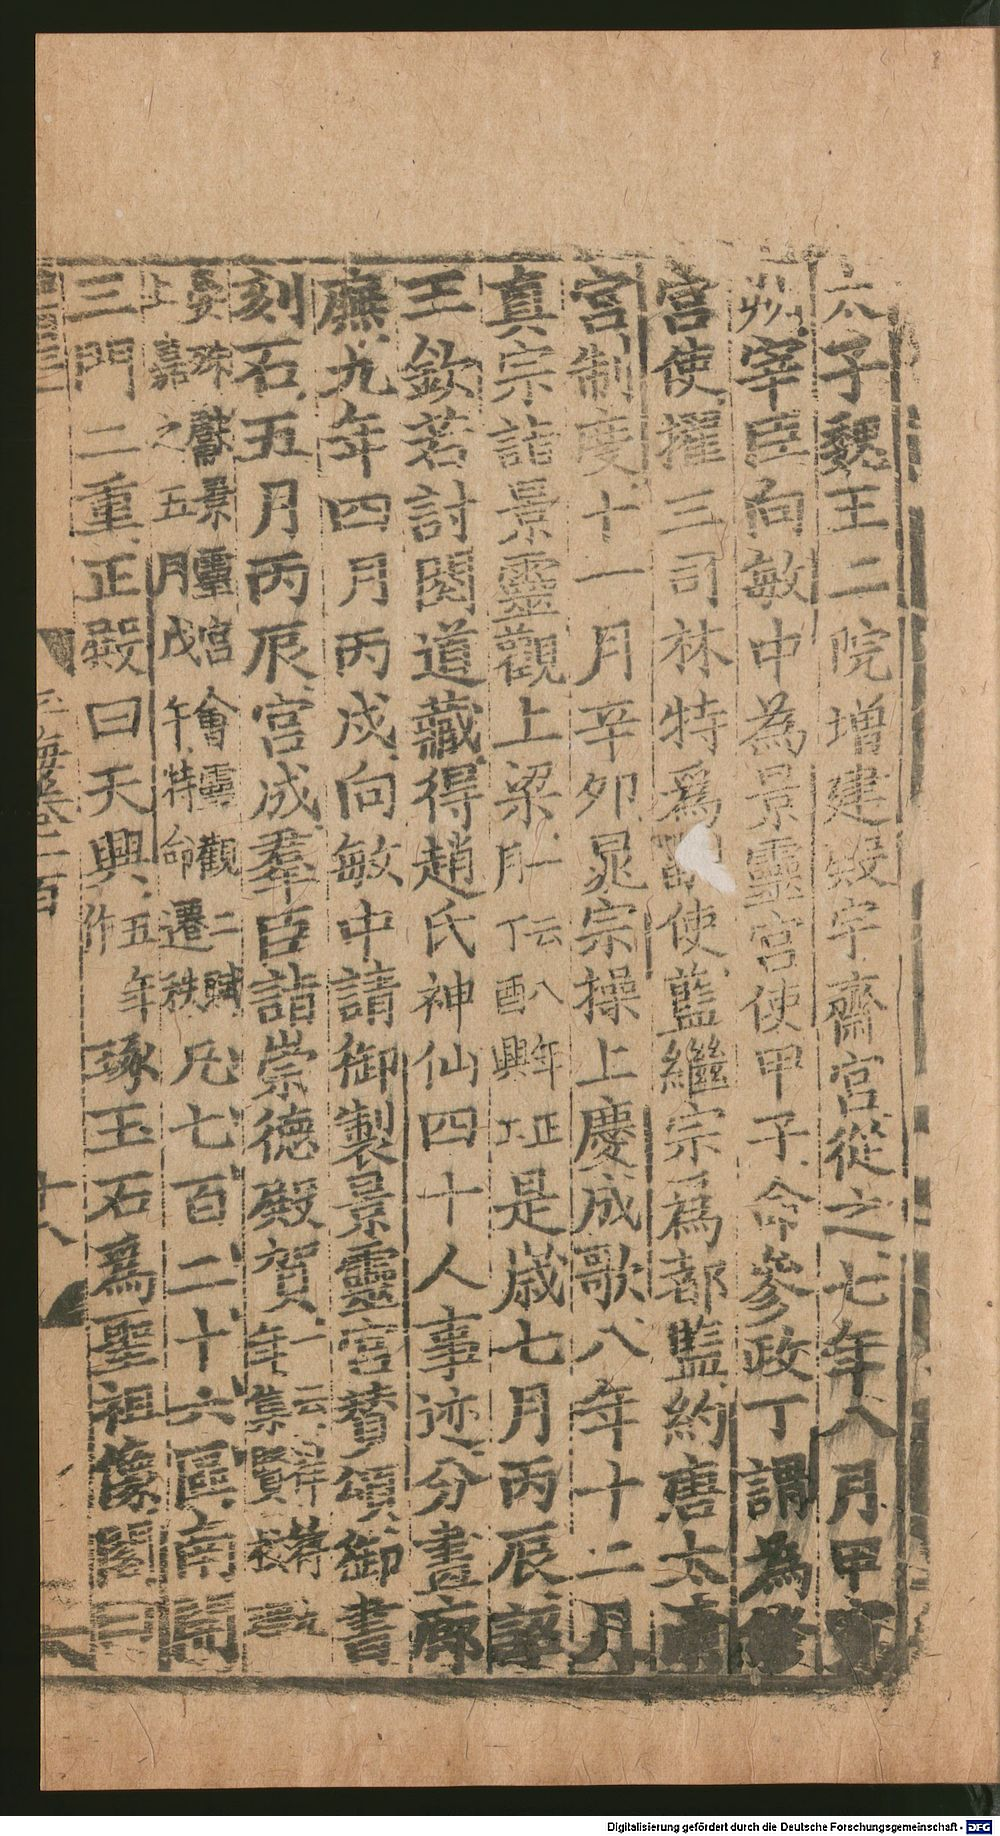 太子魏王二院增建殿宇齋宮從之七年八月甲寅
以宰臣向敏中為景靈宮使甲子命參政丁謂為修
宮使擢三司林特爲副使藍繼宗爲都監約唐太
宮制度十一月辛卯晁宗操上慶成歌八年十二月
真宗詣景靈觀上梁一云八年正月丁酉興工是歲七月丙辰詔
王欽若討閱道藏得趙氏神仙四十人事迹分畫廊
廡九年四月丙戌向敏中請御製景靈宮贊頌御書
刻石五月丙辰宮成羣臣詣崇德殿賀一云祥符年集賢校
珠獻景靈宮會靈觀二賦上嘉之五月戊午特命遷秩凡七百二十六區南開
三門二重正殿曰天興五年作琢玉石爲聖祖像閣曰
玉海卷一百
十八
Digitalisierung gefördert durch die Deutsche Forschungsgemeinschaft - DFG